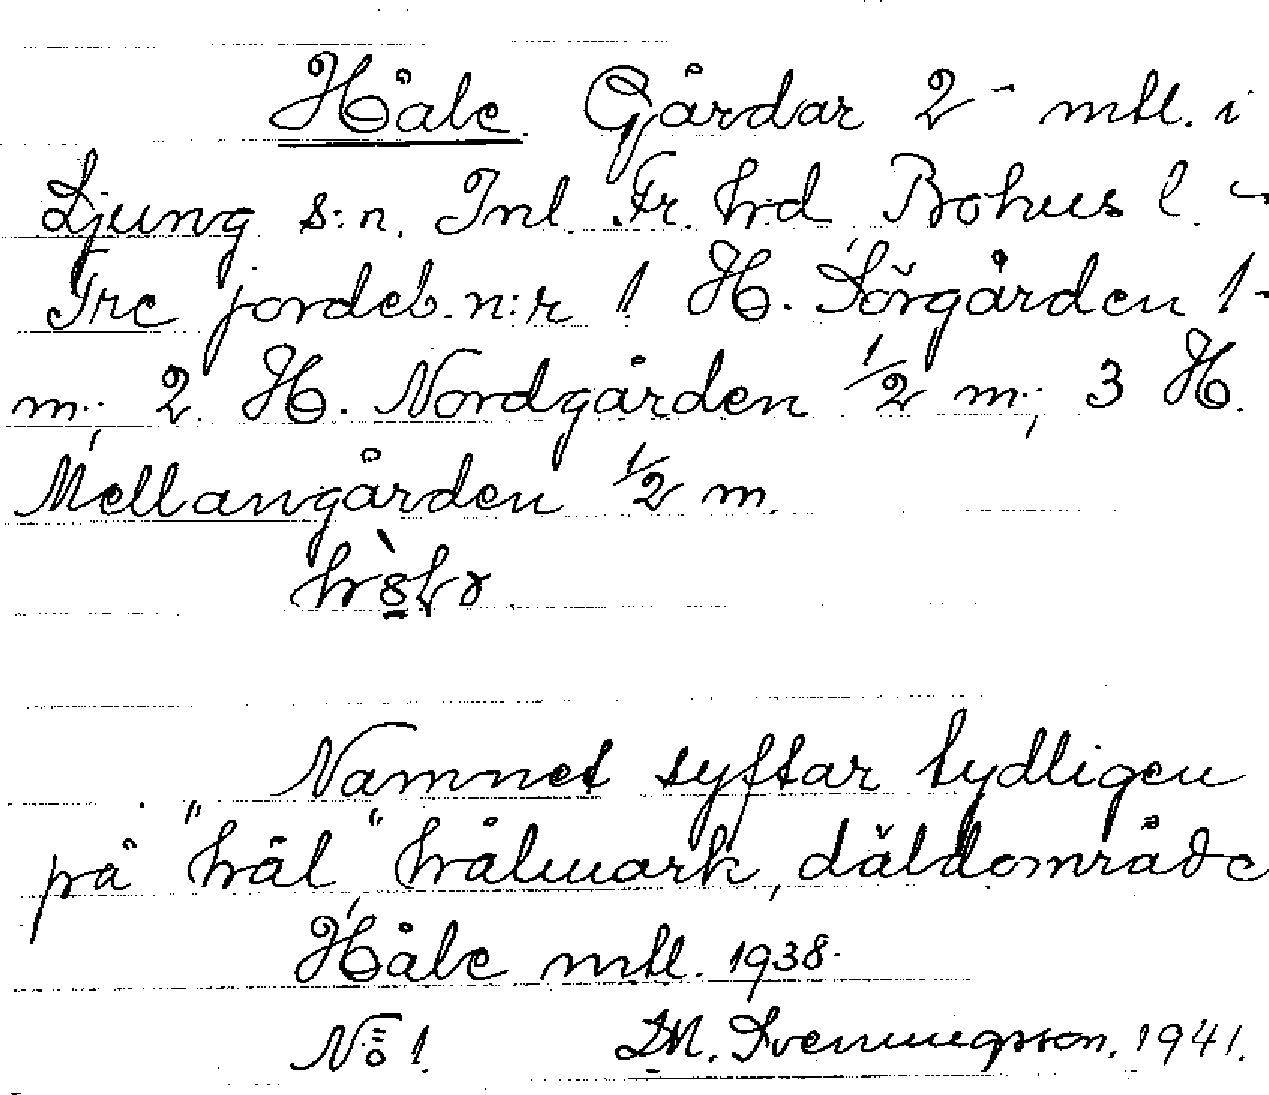 Håle. Gårdar 2 - mtl. i
Ljung s:n. Inl. Fr. hrd Bohus l. -
Tre jordeb.n:r 1 H. Sörgården 1 -
m; 2. H. Nordgården 1/2 m; 3 H.
Mellangården 1/2 m.
Namnet syftar tydligen
på "hål" hålmark, däldområde
Håle mtl. 1938.
No 1. Svenningsson. 1941.